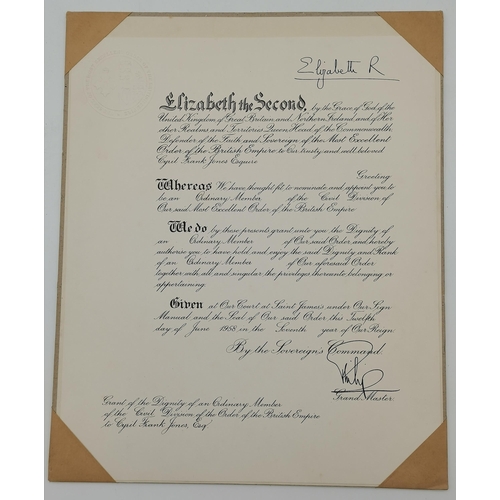 Elizabeth R
Elizabeth the Second, by the Grace of God, of the
United Kingdom of Great Britain and Northern Ireland and of Her
other Realms and Territories Queen, Head of the Commonwealth,
Defender of the Faith and Sovereign of the Most Excellent
Order of the British Empire to Our trusty and well beloved
Cyril Frank Jones Esquire
Greeting
Whereas We have thought fit to nominate and appoint you to
be an Ordinary Member of the Civil Division of
Our said Most Excellent Order of the British Empire
We do by these presents grant unto you the Dignity of
an Ordinary Member of Our said Order and hereby
authorise you to have hold and enjoy the said Dignity and Rank
of an Ordinary Member of Our aforesaid Order
together with all and singular the privileges thereunto belonging or
appertaining.
Given at Our Court at Saint James's under Our Sign
Manual and the Seal of Our said Order this Twelfth
day of June 1958 in the Seventh year of Our Reign
By the Sovereign's Command.
Philip
Grand Master.
Grant of the Dignity of an Ordinary Member
of the Civil Division of the Order of the British Empire
to Cyril Frank Jones, Esq.